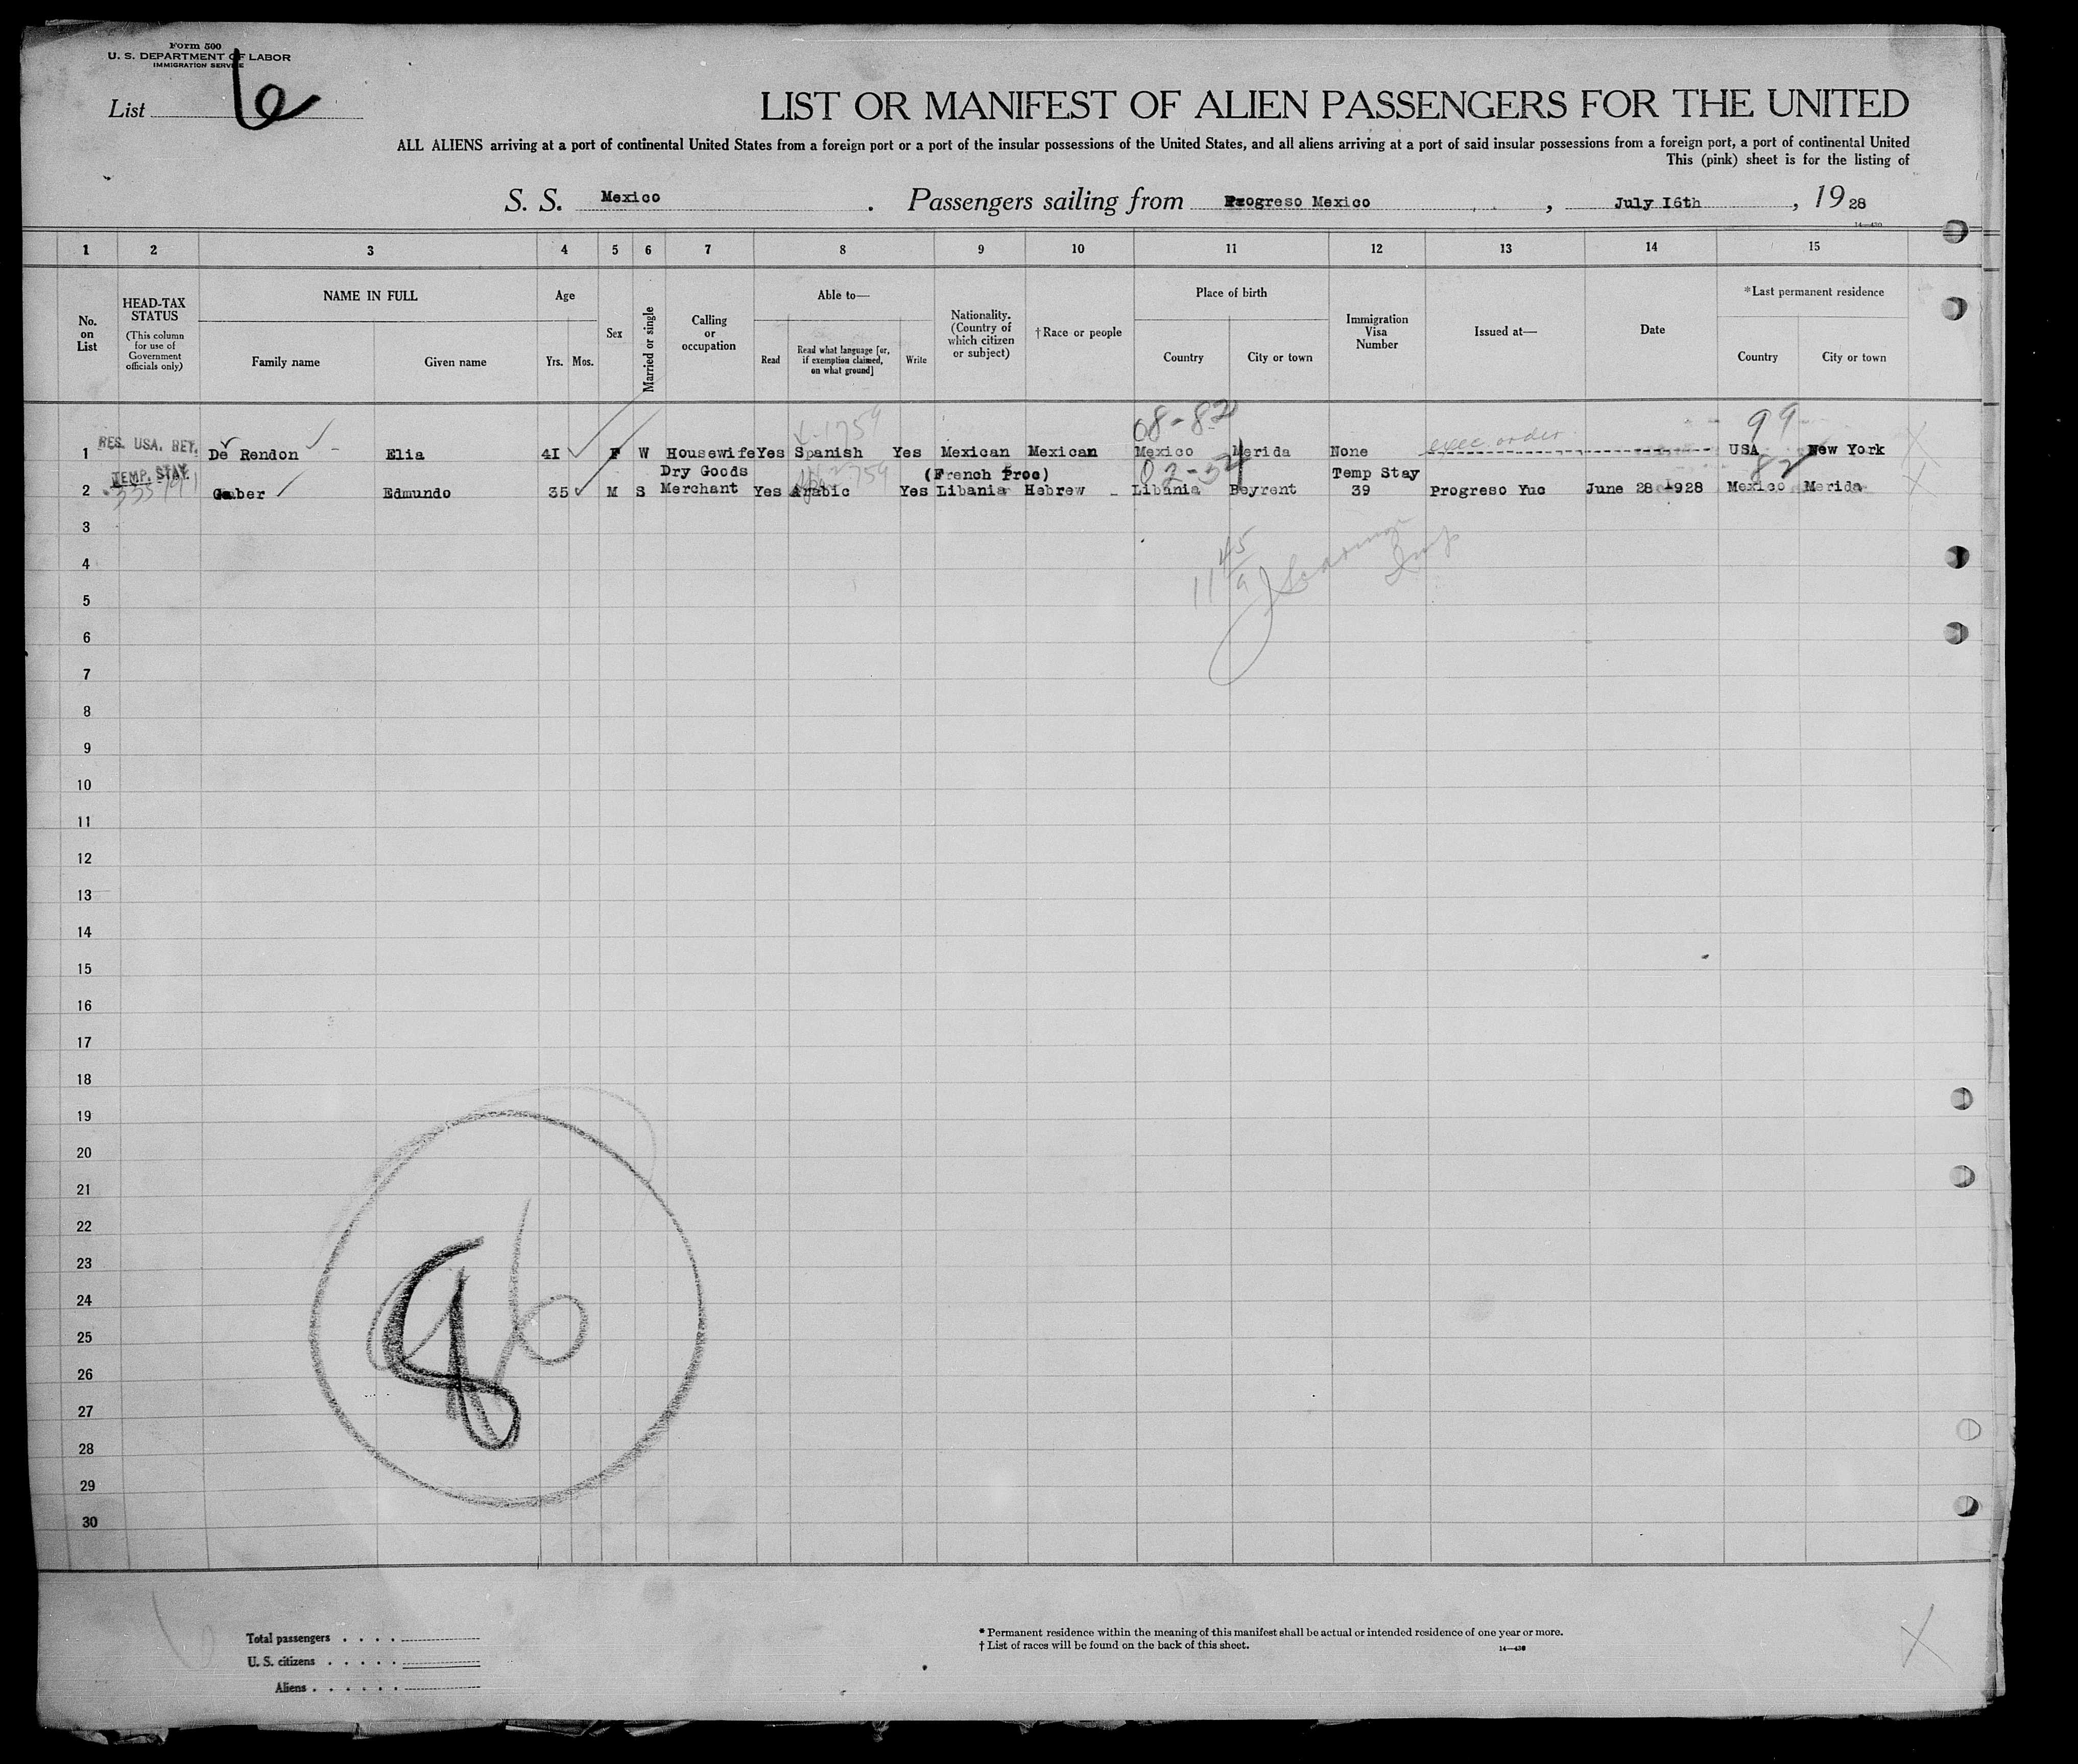 Form 500
U. S. DEPARTMENT OF LABOR
IMMIGRATION SERVICE
List 6
LIST OR MANIFEST OF ALIEN PASSENGERS FOR THE UNITED
ALL ALIENS arriving at a port of continental United States from a foreign port or a port of the insular possessions of the United States, and all aliens arriving at a port of said insular possessions from a foreign port, a port of continental United
This (pink) sheet is for the listing of
S. S. Mexico . Passengers sailing from Progreso Mexico , July I6th , 19 28
14—430
1 2 3 4 5 6 7 8 9 10 11 12 13 14 15
No. on List
HEAD-TAX STATUS
(This column for use of Government officials only)
NAME IN FULL
Family name Given name
Age
Yrs. Mos.
Sex
Married or single
Calling or occupation
Able to—
Read
Read what language [or, if exemption claimed, on what ground]
Write
Nationality. (Country of which citizen or subject)
†Race or people
Place of birth
Country City or town
Immigration Visa Number
Issued at—
Date
*Last permanent residence
Country City or town
08-82 99
1 RES. USA. RET. De Rendon Elia 4I F W Housewife Yes Spanish Yes Mexican Mexican Mexico Merida None exec order USA New York
TEMP. STAY. Dry Goods (French Proc) Temp Stay 82
2 Gaber Edmundo 35 M S Merchant Yes Arabic Yes Libania Hebrew Libania Beyrent 39 Progreso Yuc June 28 1928 Mexico Merida
3
4
5
6
7
8
9
10
11
12
13
14
15
16
17
18
19
20
21
22
23
24
25
26
27
28
29
30
Total passengers
U. S. citizens
Aliens
* Permanent residence within the meaning of this manifest shall be actual or intended residence of one year or more.
† List of races will be found on the back of this sheet.
14—430